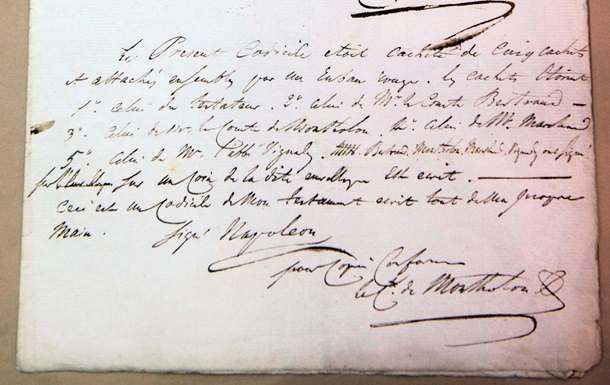 Le Present Codicile etoit cacheté de Cinq cachets
et attachés ensembles par un Ruban rouge. les cachets étoient
1º. celui du testateur. 2º. celui de Mr. le Comte Bertrand —
3º. celui de Mr. le Comte de Montholon. 4º. celui de Mr. Marchand
5º. celui de Mr. l'abbé Vignaly. MM. Bertrand, Montholon, Marchand, Vignaly ont signé
sur l'Enveloppe sur un Coin de la dite enveloppe Est écrit. —
Ceci est un Codicile de Mon testament ecrit tout de Ma propre
Main. Signé Napoleon
pour Copie Conforme
le Cte. de Montholon